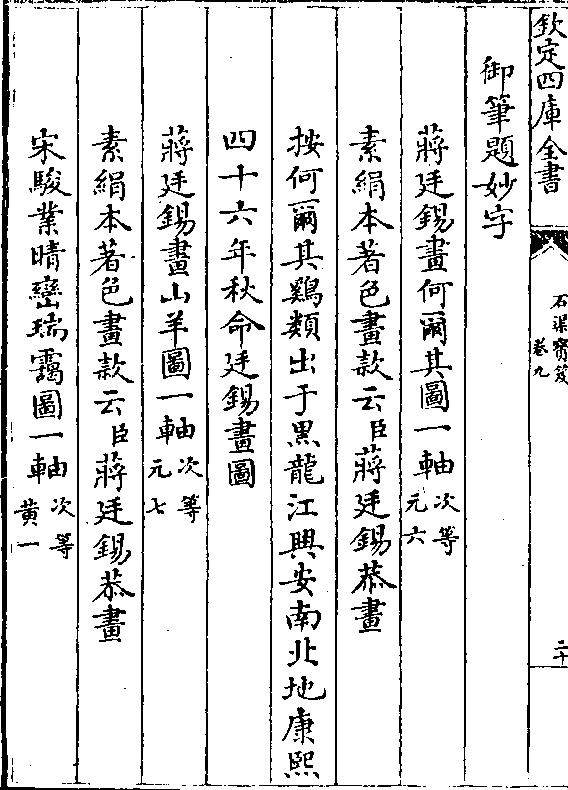 欽定四庫全書
石渠寳笈
卷九
二十
御筆題妙字
蔣廷錫畫何爾其圖一軸次等元六
素絹本著色畫款云臣蔣廷錫恭畫
按何爾其鷄類出于黒龍江興安南北地康熙
四十六年秋命廷錫畫圖
蔣廷錫畫山羊圖一軸次等元七
素絹本著色畫款云臣蔣廷錫恭畫
宋駿業晴巒瑞靄圖一軸次等黄一